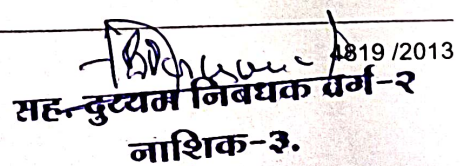 4819 /2013
सह. दुय्यम निबंधक वर्ग-२
नाशिक-३.